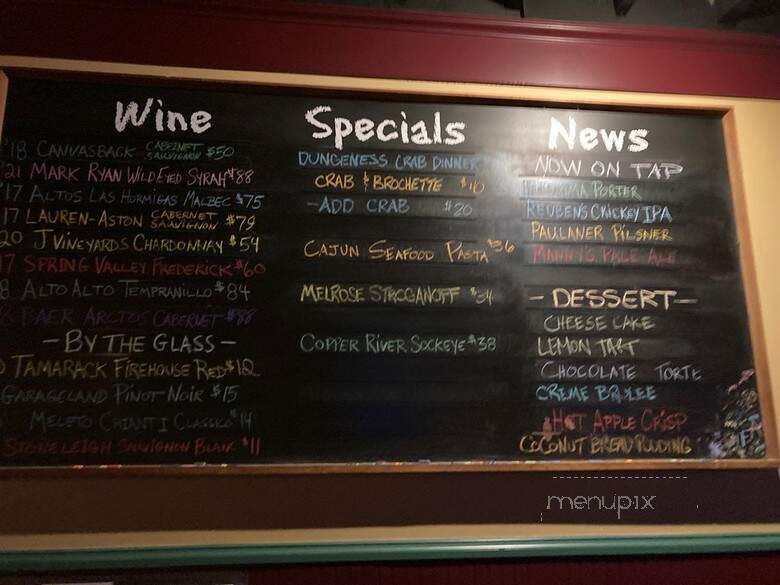 Wine
'18 CANVASBACK CABERNET SAUVIGNON $50
'21 MARK RYAN WILD EYED SYRAH $88
'17 ALTOS LAS HORMIGAS MALBEC $75
17 LAUREN-ASTON CABERNET SAUVIGNON $79
20 J VINEYARDS CHARDONNAY $54
17 SPRING VALLEY FREDERICK $60
8 ALTO ALTO TEMPRANILLO $84
BAER ARCTOS CABERNET $88
- BY THE GLASS -
TAMARACK FIREHOUSE RED $12
GARAGELAND PINOT NOIR $15
MELETO CHIANTI CLASSICO $14
STONELEIGH SAUVIGNON BLANC $11
Specials
DUNGENESS CRAB DINNER
CRAB & BROCHETTE
-ADD CRAB $20
CAJUN SEAFOOD PASTA $36
MELROSE STROGANOFF $34
COPPER RIVER SOCKEYE $38
News
NOW ON TAP
PORTER
REUBENS CRICKEY IPA
PAULANER PILSNER
MANNY'S PALE ALE
- DESSERT -
CHEESE CAKE
LEMON TART
CHOCOLATE TORTE
CREME BRULEE
HOT APPLE CRISP
COCONUT BREAD PUDDING
menupix